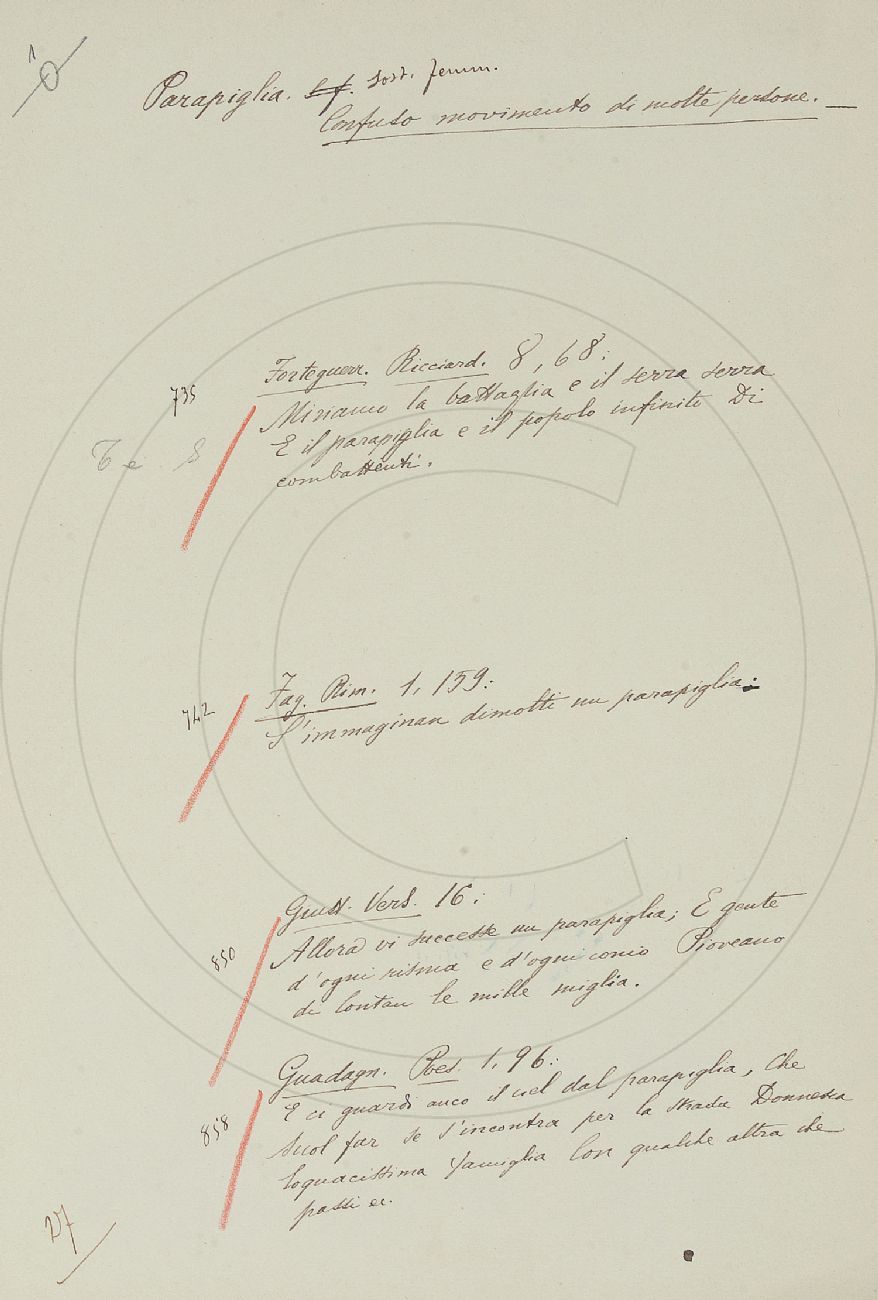 1
Parapiglia. S. f. Sost. femm.
Confuso movimento di molte persone. —
Forteguerr. Ricciard. 8, 68:
735
Miriamo la battaglia e il serra serra
E il parapiglia e il popolo infinito Di
T e S
combattenti.
Fag. Rim. 1, 159:
742
S'immaginan dimolti un parapiglia:
Giust. Vers. 16:
Allora vi successe un parapiglia; E gente
850
d'ogni risma e d'ogni conio Pioveano
di lontan le mille miglia.
Guadagn. Poes. 1, 96:
E ci guardi anco il ciel dal parapiglia, Che
858
Suol far se s'incontra per la strada Donnesca
loquacissima famiglia Con qualche altra che
passi ec.
27
C